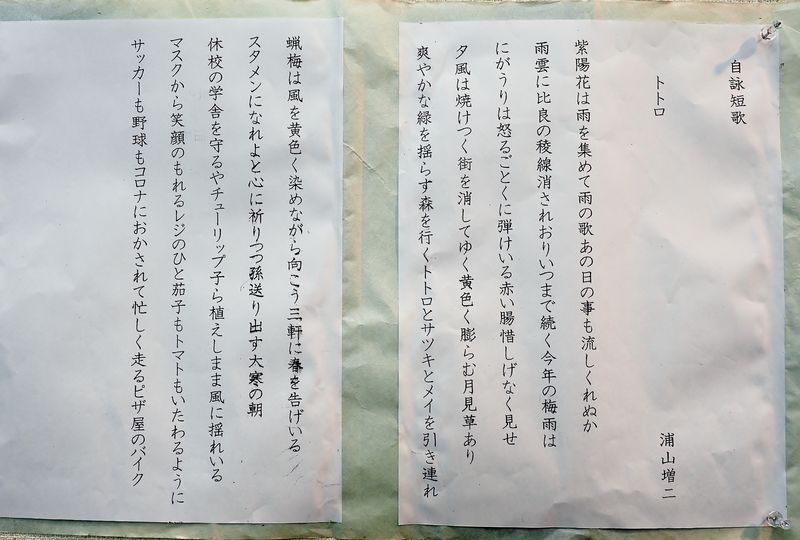 自詠短歌
トトロ
浦山増二
紫陽花は雨を集めて雨の歌あの日の事も流しくれぬか
雨雲に比良の稜線消されおりいつまで続く今年の梅雨は
にがうりは怒るごとくに弾けいる赤い腸惜しげなく見せ
夕風は焼けつく街を消してゆく黄色く膨らむ月見草あり
爽やかな緑を揺らす森を行くトトロとサツキとメイを引き連れ
蝋梅は風を黄色く染めながら向こう三軒に春を告げいる
スタメンになれよと心に祈りつつ孫送り出す大寒の朝
休校の学舎を守るやチューリップ子ら植えしまま風に揺れいる
マスクから笑顔のもれるレジのひと茄子もトマトもいたわるように
サッカーも野球もコロナにおかされて忙しく走るピザ屋のバイク